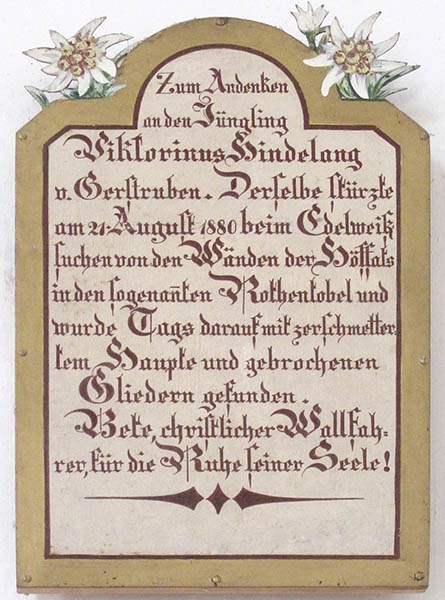 Zum Andenken
an den Jüngling
Viktorinus Hindelang
v. Gerstruben. Derselbe stürzte
am 21. August 1880 beim Edelweiß
suchen von den Wänden der Höffats
in den sogenan̅ten Rothentobel und
wurde Tags darauf mit zerschmetter
tem Haupte und gebrochenen
Gliedern gefunden.
Bete, christlicher Wallfah-
rer, für die Ruhe seiner Seele!